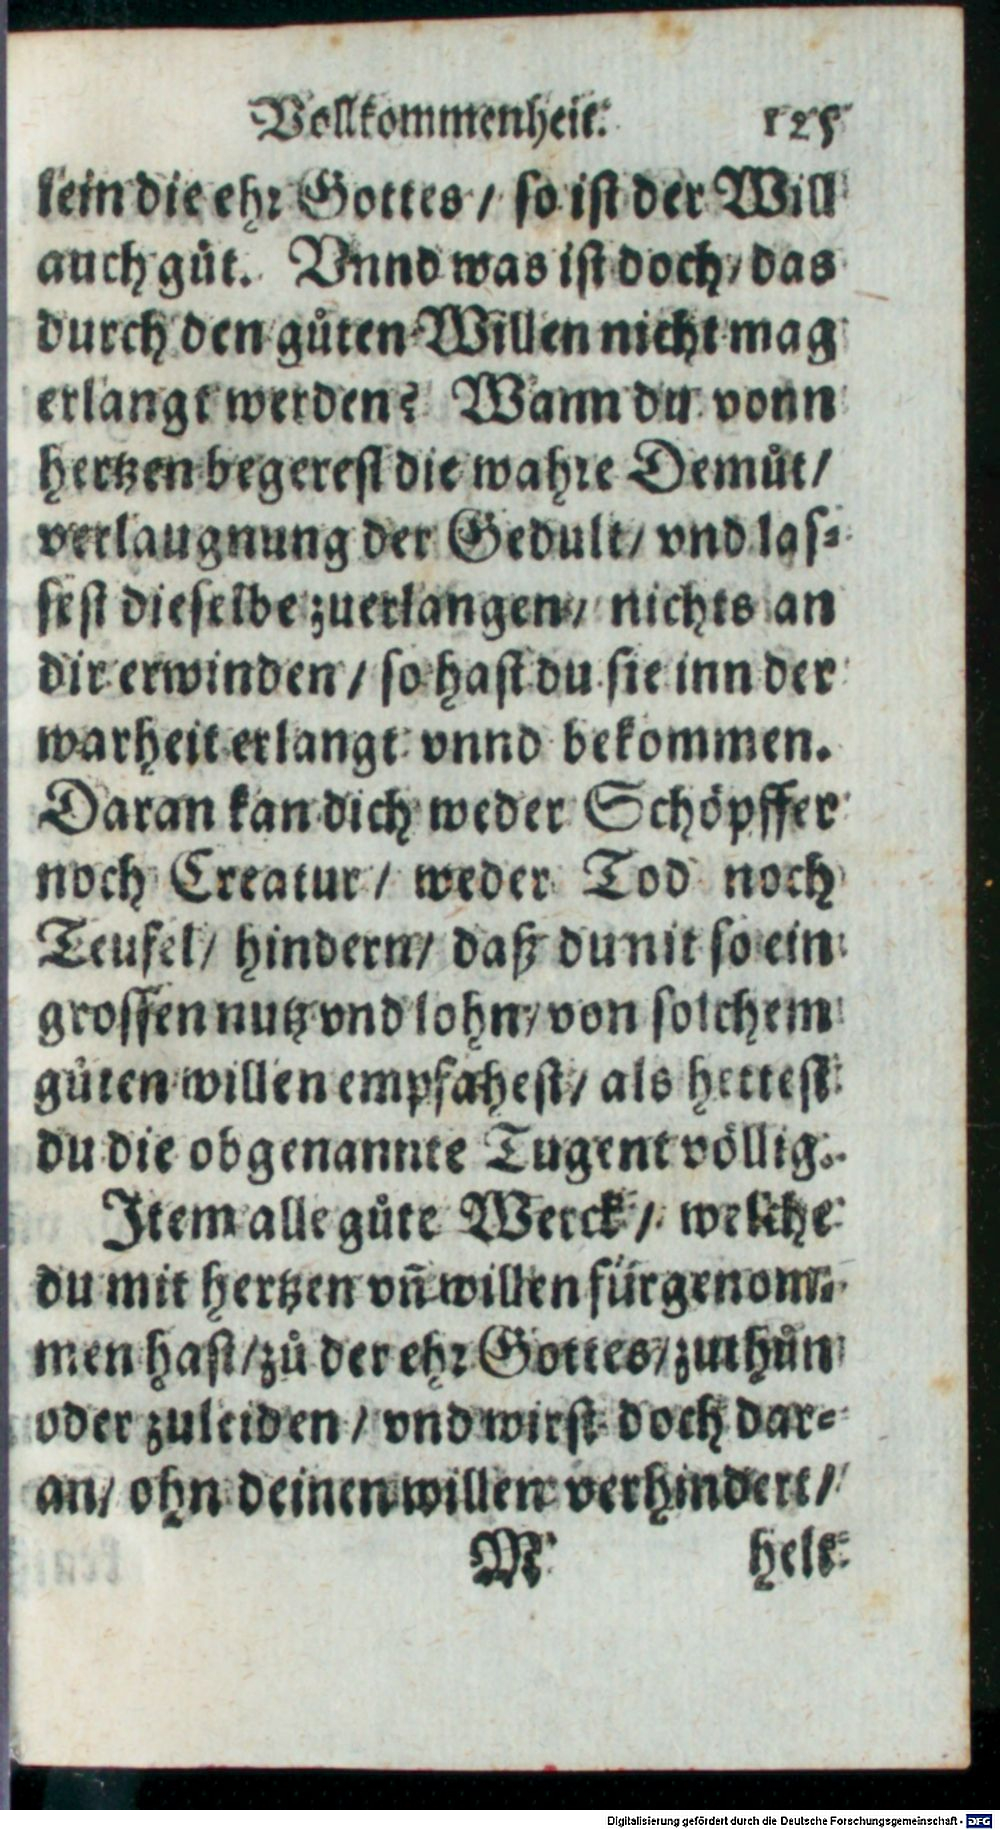 Vollkommenheit. 125
lein die ehr Gottes / so ist der Will
auch gůt. Vnnd was ist doch / das
durch den gůten Willen nicht mag
erlangt werden? Wann du vonn
hertzen begerest die wahre Demůt /
verlaugnung der Gedult / vnd las-
sest dieselbe zuerlangen / nichts an
dir erwinden / so hast du sie inn der
warheit erlangt vnnd bekommen.
Daran kan dich weder Schöpffer
noch Creatur / weder Tod noch
Teufel / hindern / daß du nit so ein
grossen nutz vnd lohn / von solchem
gůten willen empfahest / als hettest
du die obgenannte Tugent völlig.
Item alle gůte Werck / welche
du mit hertzen vñ willen fürgenom-
men hast / zů der ehr Gottes / zuthůn
oder zuleiden / vnd wirst doch dar-
an / ohn deinen willen verhindert /
M helt
Digitalisierung gefördert durch die Deutsche Forschungsgemeinschaft - DFG